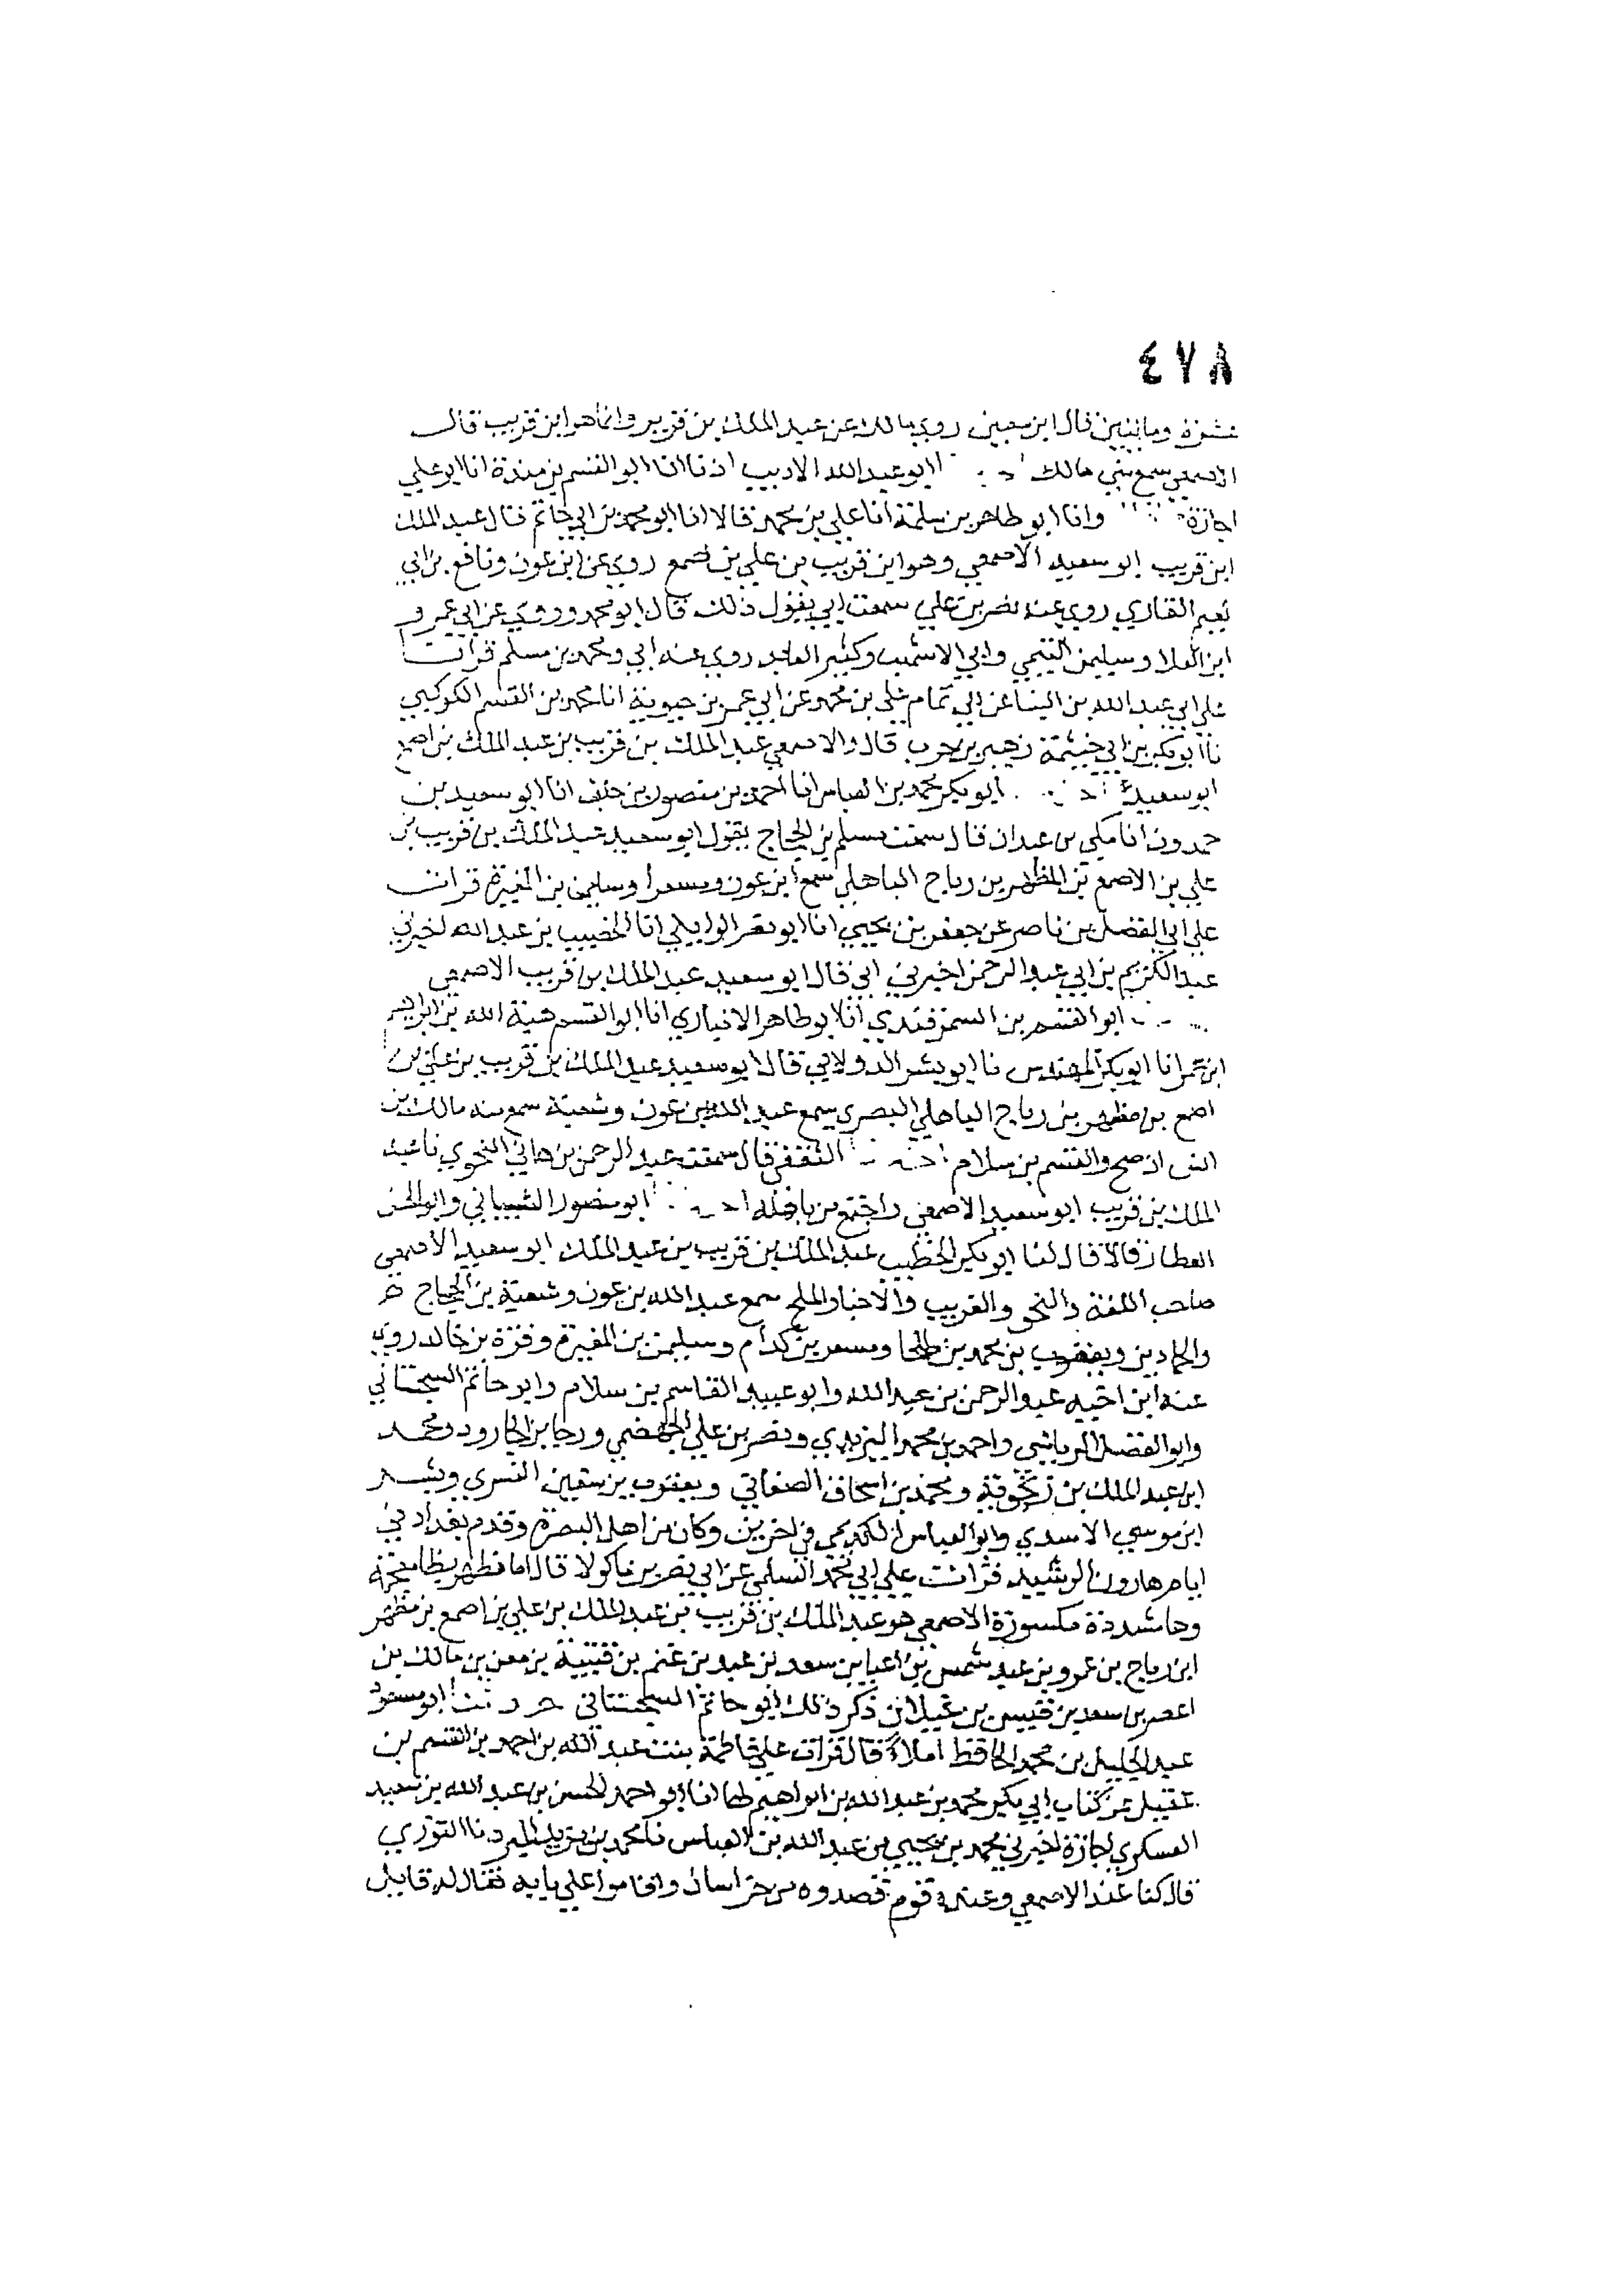 ٤٧٨
عشرة ومايتين قال ابن معين روى مالك عن عبد الملك بن قرير وانما هو ابن قريب قال
الاصمعي سمع مني مالك ابو عبد الله الاديب اذنا انا ابو القسم بن مندة انا ابو علي
اجازة وانا ابو طاهر بن سلمة انا علي بن محمد قالا انا ابو محمد بن ابي حاتم قال عبد الملك
ابن قريب ابو سعيد الاصمعي وهو ابن قريب بن علي بن اصمع روى عن ابن عون ونافع بن ابي
نعيم القاري روى عنه نصر بن علي سمعت ابي يقول ذلك قال ابو محمد وروى عن ابي عمرو
ابن العلا وسليمن التيمي وابي الاشهب وكثير العابد روى عنه ابي ومحمد بن مسلم قرات
علي ابي عبد الله بن البنا عن ابي تمام علي بن محمد عن ابي عمر بن حيوية انا محمد بن القسم الكوكبي
نا ابو بكر بن ابي خيثمة زهير بن حرب قال والاصمعي عبد الملك بن قريب بن عبد الملك بن اصمع
ابو سعيد ابو بكر محمد بن العباس انا احمد بن منصور بن خلف انا ابو سعيد بن
حمدون انا مكي بن عبدان قال سمعت مسلم بن الحجاج يقول ابو سعيد عبد الملك بن قريب بن
علي بن الاصمع بن المظهر بن رياح الباهلي سمع ابن عون ومسعرا وسليمن بن المغيرة قرات
علي ابي الفضل بن ناصر عن جعفر بن يحيي انا ابو نصر الوايلي انا الخصيب بن عبد الله اخبرني
عبد الكريم بن ابي عبد الرحمن اخبرني ابي قال ابو سعيد عبد الملك بن قريب الاصمعي
ابو القسم بن السمرقندي انا ابو طاهر الانباري انا ابو القسم هبة الله بن ابراهيم
ابن عمر انا ابو بكر المهندس نا ابو بشر الدولابي قال ابو سعيد عبد الملك بن قريب بن علي بن
اصمع بن مظهر بن رياح الباهلي البصري سمع عبد الله بن عون وشعبة سمع منه مالك بن
انس ان صح والقسم بن سلام الثقفي قال سمعت عبد الرحمن بن هاني النحوي نا عبد
الملك بن قريب ابو سعيد الاصمعي ابو منصور الشيباني وابو الحسن
العطار قالا قال لنا ابو بكر الخطيب عبد الملك بن قريب بن عبد الملك ابو سعيد الاصمعي
صاحب اللغة والنحو والغريب والاخبار والملح سمع عبد الله بن عون وشعبة بن الحجاج
والحمادين ويعقوب بن محمد بن طحلا ومسعر بن كدام وسليمن بن المغيرة وقرة بن خالد روى
عنه ابن اخيه عبد الرحمن بن عبد الله وابو عبيد القاسم بن سلام وابو حاتم السجستاني
وابو الفضل الرياشي واحمد بن محمد اليزيدي ونصر بن علي الجهضمي ورجا بن الجارود ومحمد
ابن عبد الملك بن زنجوية ومحمد بن اسحاق الصغاني ويعقوب بن سفيان النسوي وبشر
ابن موسى الاسدي وابو العباس الكديمي في اخرين وكان من اهل البصرة وقدم بغداد في
ايام هارون الرشيد قرات علي ابي محمد السلمي عن ابي نصر بن ماكولا قال اما مظهر بظا معجمة
وها مشددة مكسورة الاصمعي هو عبد الملك بن قريب بن عبد الملك بن علي بن اصمع بن مظهر
ابن رياح بن عمرو بن عبد شمس بن اعيا بن سعد بن عبد بن غنم بن قتيبة بن معن بن مالك بن
اعصر بن سعد بن قيس بن عيلان ذكر ذلك ابو حاتم السجستاني حدثنا ابو مسعود
عبد الجليل بن محمد الحافظ املاء قال قرات علي فاطمة بنت عبد الله بن احمد بن القسم بن
عقيل عن كتاب ابي بكر محمد بن عبد الله بن ابراهيم لها انا ابو احمد الحسن بن عبد الله بن سعيد
العسكري اجازة اخبرني محمد بن يحيي بن عبد الله بن العباس نا محمد بن يزيد المبرد نا التوزي
قال كنا عند الاصمعي وعنده قوم قصدوه من خراسان واقاموا علي بابه فقال له قايل